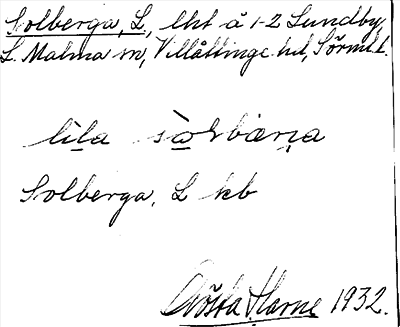 Solberga, L., lht å 1-2 Lundby,
L. Malma sn, Villåttinge hd, Sörml. l.
lìla sò̠lbæṇa
Solberga, L kb
Gösta Harne 1932.